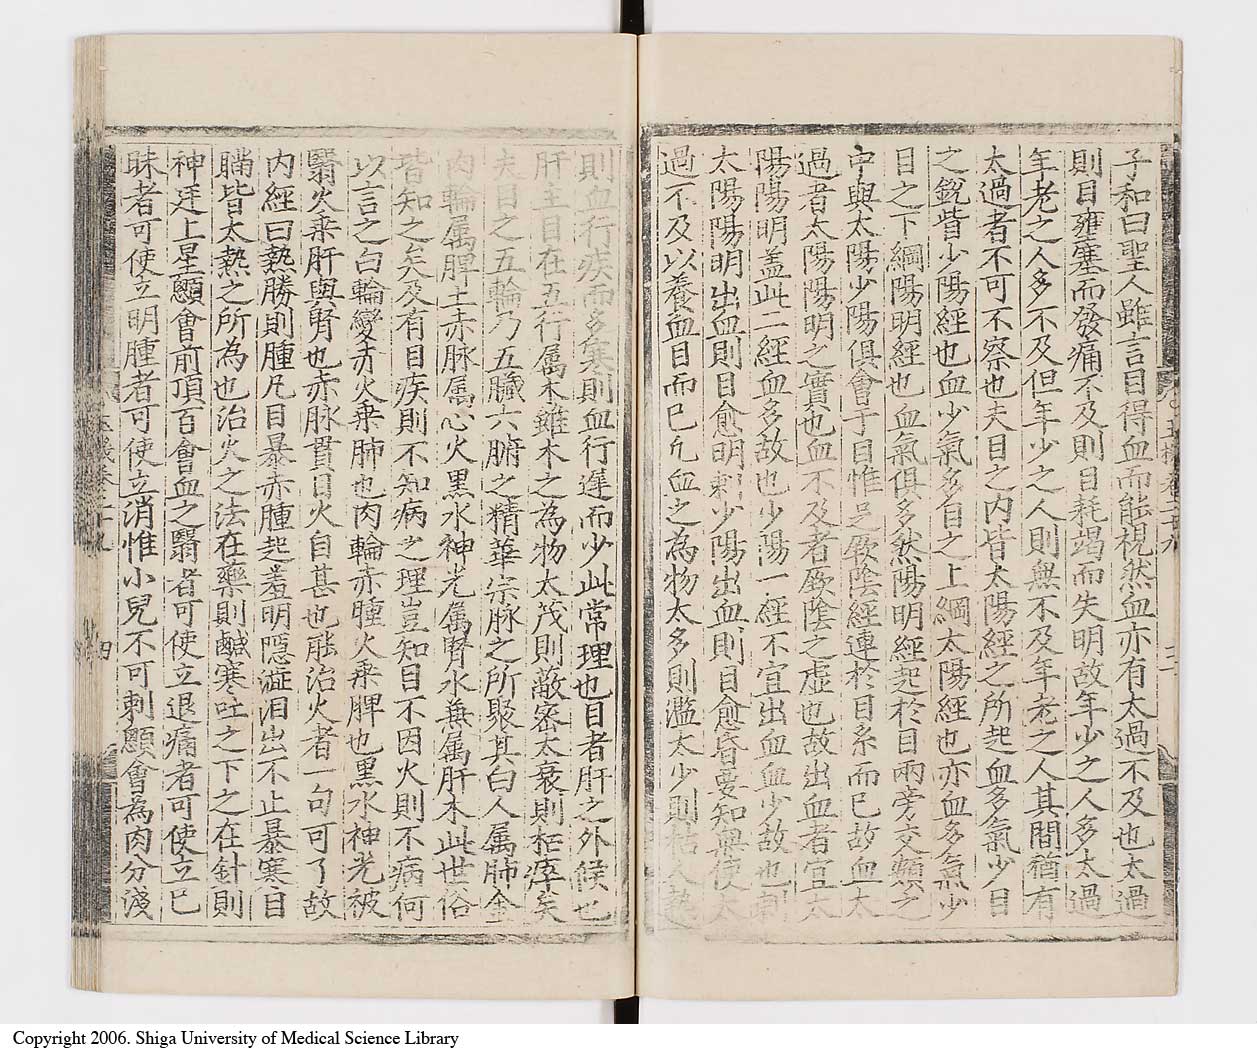 子和曰聖人雖言目得血而能視然血亦有太過不及也太過
則目壅塞而發痛不及則目耗竭而失明故年少之人多太過
年老之人多不及但年少之人則無不及年老之人其間猶有
太過者不可不察也夫目之內眥太陽經之所起血多氣少目
之銳眥少陽經也血少氣多目之上綱太陽經也亦血多氣少
目之下綱陽明經也血氣俱多然陽明經起於目兩旁交頞之
中與太陽少陽俱會于目惟足厥陰經連於目系而已故血太
過者太陽陽明之實也血不及者厥陰之虛也故出血者宜太
陽陽明蓋此二經血多故也少陽一經不宜出血血少故也刺
太陽陽明出血則目愈明刺少陽出血則目愈昏要知無使太
過不及以養血目而已凡血之為物太多則濫太少則枯人熱
則血行疾而多寒則血行遲而少此常理也目者肝之外候也
肝主目在五行属木雖木之為物太茂則蔽密太衰則枯瘁矣
夫目之五輪乃五臟六腑之精華宗脉之所聚其白人属肺金
肉輪属脾土赤脉属心火黑水神光属腎水兼属肝木此世俗
皆知之矣及有目疾則不知病之理豈知目不因火則不病何
以言之白輪變赤火乘肺也肉輪赤腫火乘脾也黑水神光被
翳火乘肝與腎也赤脉貫目火自甚也能治火者一句可了故
內經曰熱勝則腫凡目暴赤腫起羞明隱澁泪出不止暴寒目
瞞皆大熱之所為也治火之法在藥則鹹寒吐之下之在針則
神廷上星顖會前頂百會血之翳者可使立退痛者可使立已
昧者可使立明腫者可使立消惟小兒不可刺顖會為肉分淺
四